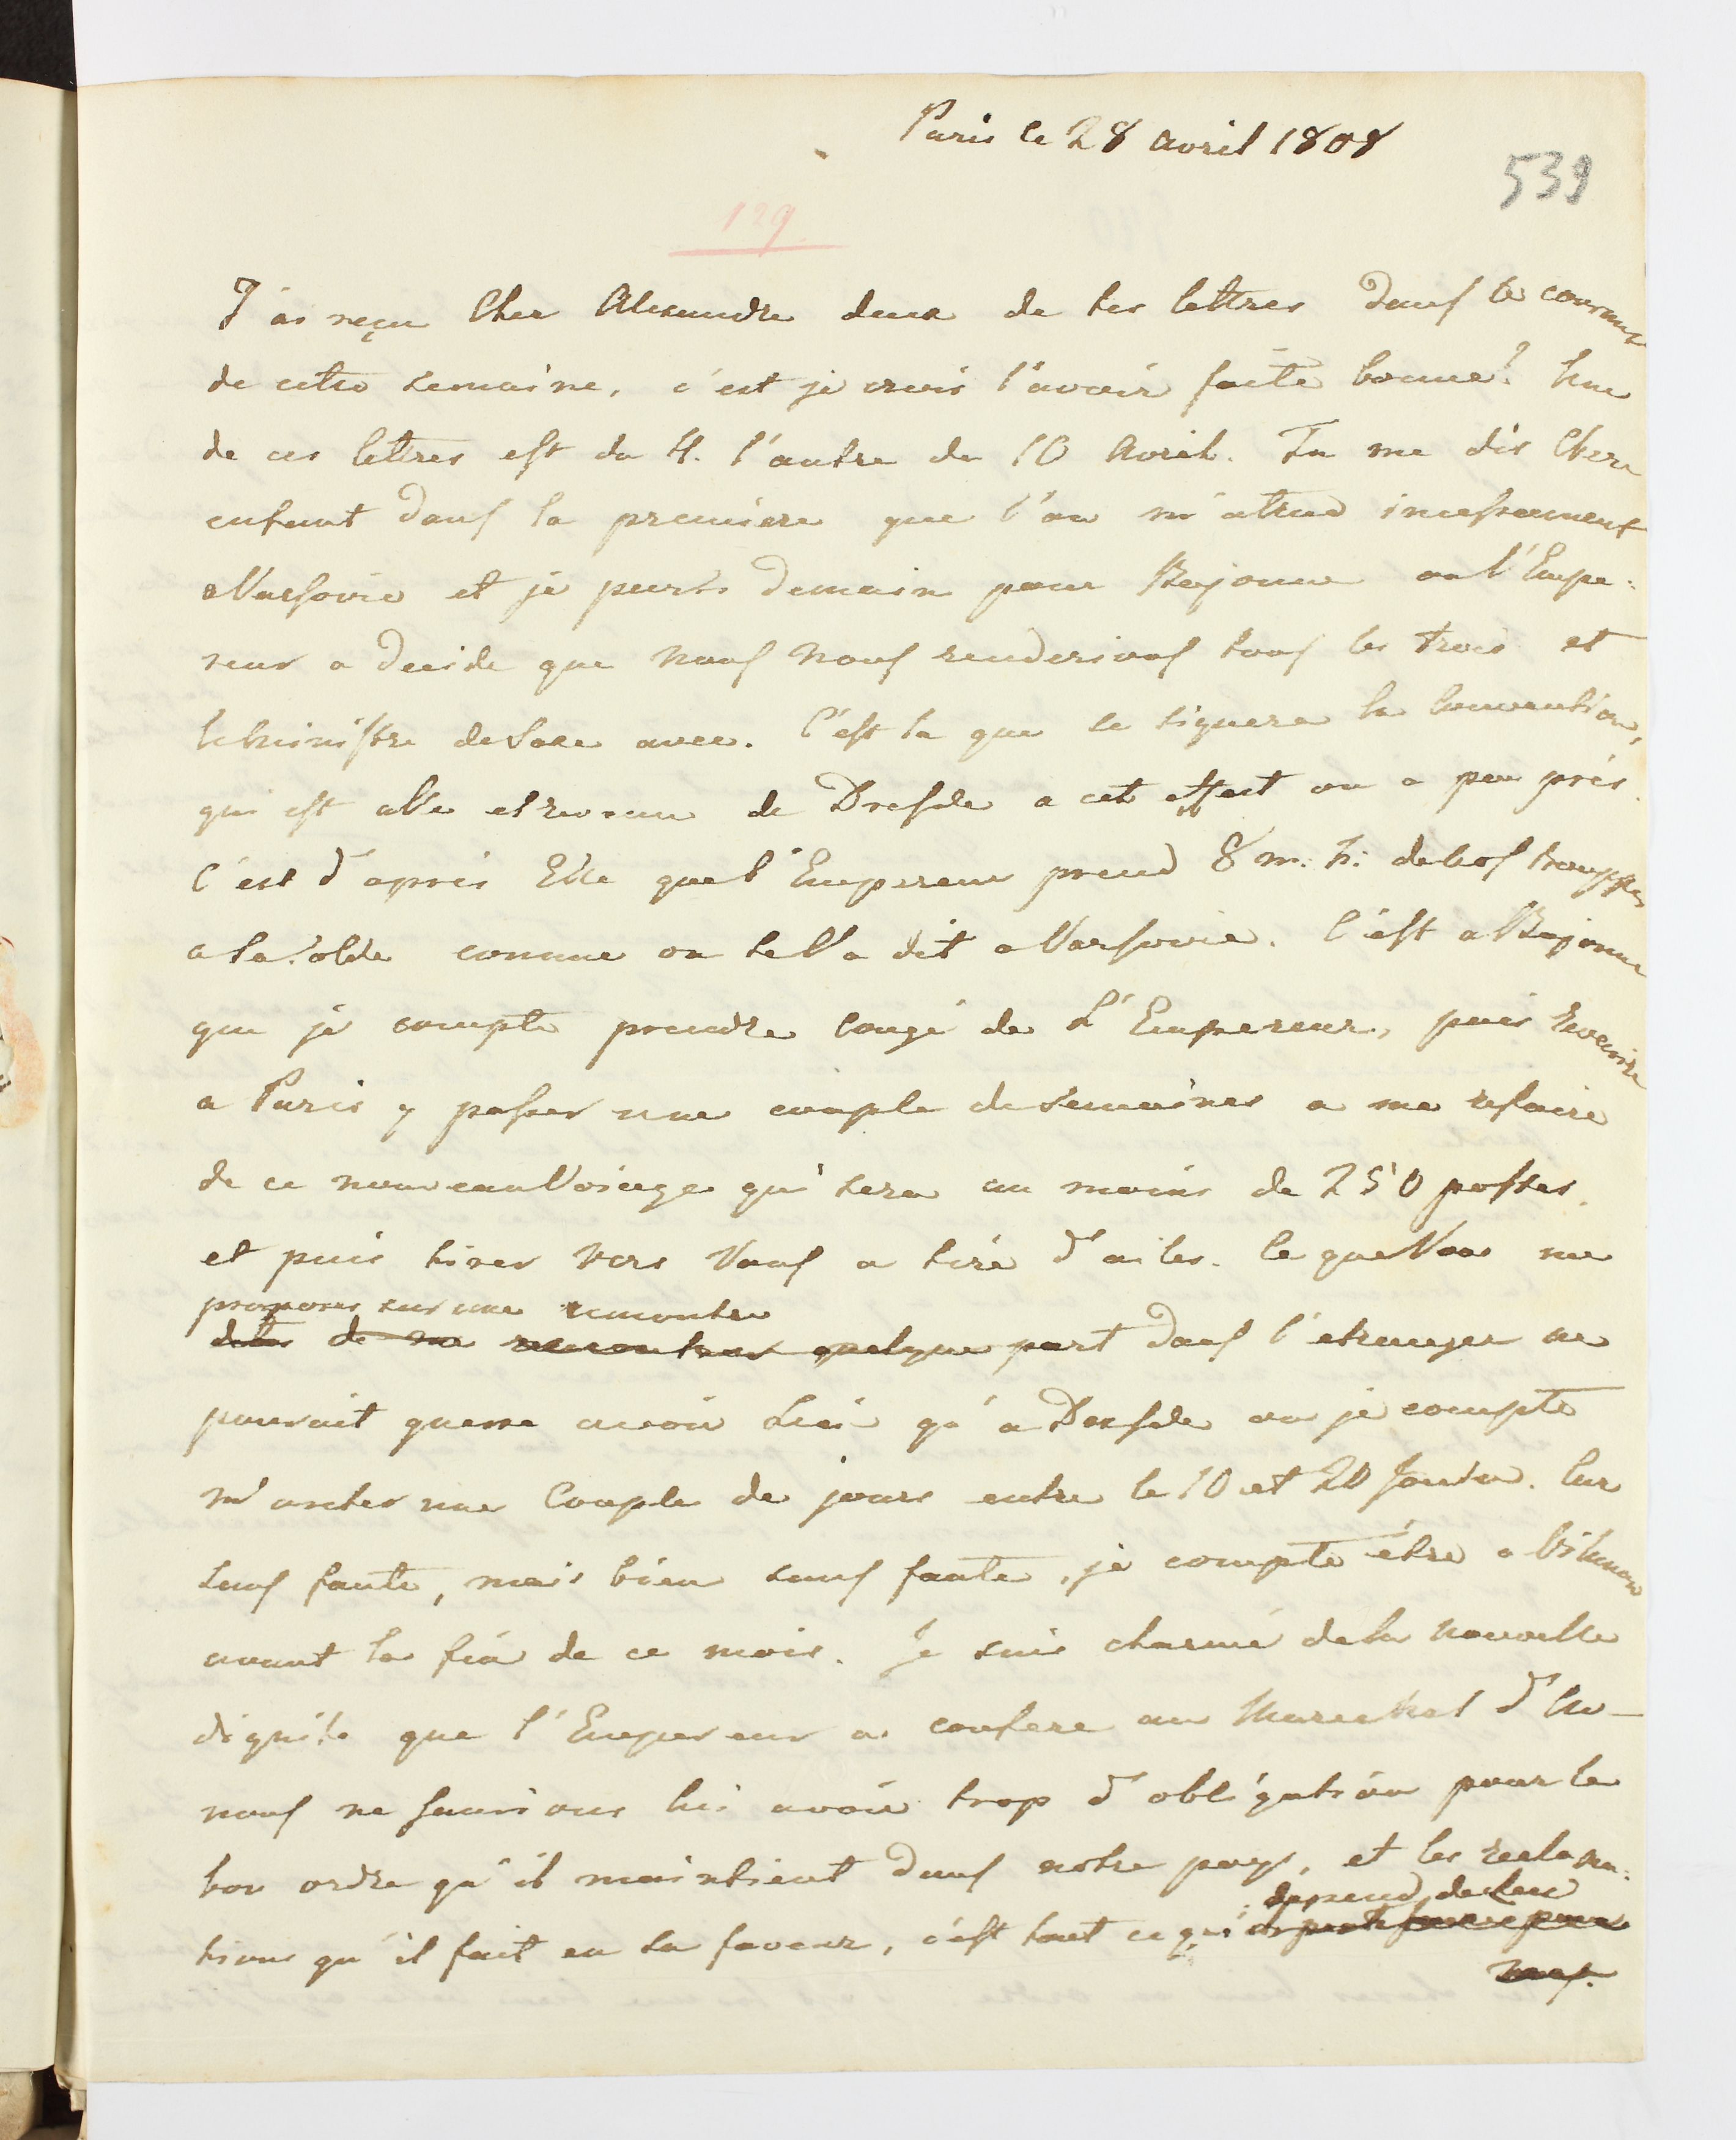 Paris le 28 avril 1808
539
129
J'ai reçu Cher Alexandre deux de tes lettres dans le courant
de cette semaine, c'est je crois l'avoir faite bonne. Une
de ces lettres est du 4. l'autre du 10 Avril. Tu me dis Chere
enfant dans la premiere que l'on m'attend incessament
a Varsovie et je parts demain pour Bajonne ou l'Empe-
reur a decide que nous nous renderions tous les trois et
le Ministre de Saxe avec. C'est la que se signera la Convention,
qui est allé et revenue de Dresde a cet effect ou a peu près.
C'est d'apres Elle que l'Empereur prend 8 m. h. de nos trouppes
a sa Solde comme on te l'a dit a Varsovie. C'est a Bajonne
que je compte prendre Congé de L'Empereur, puis revenire
a Paris y passer une couple de semaines a me refaire
de ce nouveau Voiage qui sera au moins de 250 postes.
et puis tirer Vers Vous a tire d'ailes. Ce que Vous me
proposes sur une rencontre
dites de me rencontrer quelque part dans l'etranger ne
pouroit guerre avoir Lieu qu'a Dresde ou je compte
m'areter une Couple de jours entre le 10 et 20 Juin. Car
sans faute, mais bien sans faute, je compte être a Vilanow
avant la fin de ce mois. Je suis charmé de la nouvelle
dignite que l'Empereur a confere au Marechal d'Av-
nous ne saurions lui avoir trop d'obligation pour le
bon ordre qu'il maintient dans notre pays, et les reclama-
tions qu'il fait en sa faveur, c'est tout ce qui
depend de Lui
nous.